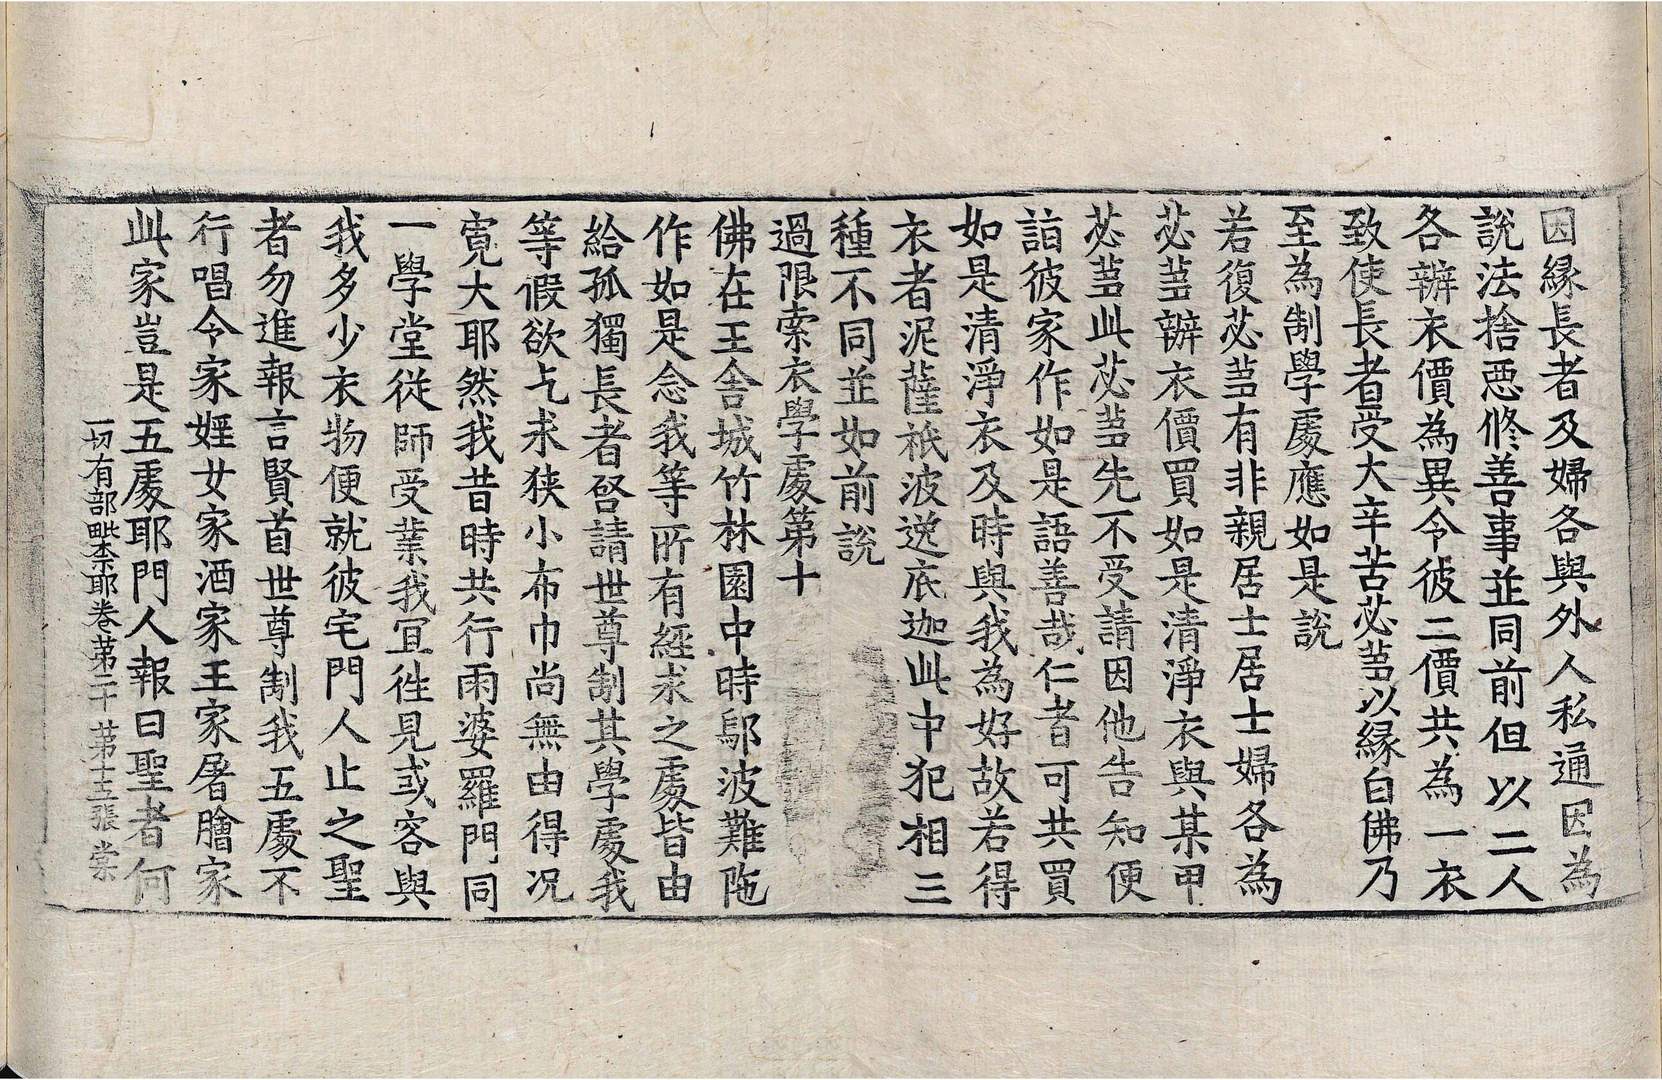 因緣長者及婦各與外人私通因為
說法捨惡修善事並同前但以二人
各辦衣價為異令彼二價共為一衣
致使長者受大辛苦苾芻以緣白佛乃
至為制學處應如是說
若復苾芻有非親居士居士婦各為
苾芻辦衣價買如是清淨衣與某甲
苾芻此苾芻先不受請因他告知便
詣彼家作如是語善哉仁者可共買
如是清淨衣及時與我為好故若得
衣者泥薩祇波逸底迦此中犯相三
種不同並如前說
過限索衣學處第十
佛在王舍城竹林園中時鄔波難陁
作如是念我等所有經求之處皆由
給孤獨長者啓請世尊制其學處我
等假欲乞求狹小布巾尚無由得況
寬大耶然我昔時共行雨婆羅門同
一學堂從師受業我冝往見或容與
我多少衣物便就彼宅門人止之聖
者勿進報言賢首世尊制我五處不
行唱令家婬女家酒家王家屠膾家
此家豈是五處耶門人報曰聖者何
一切有部毗柰耶卷第二十 第十三張 棠